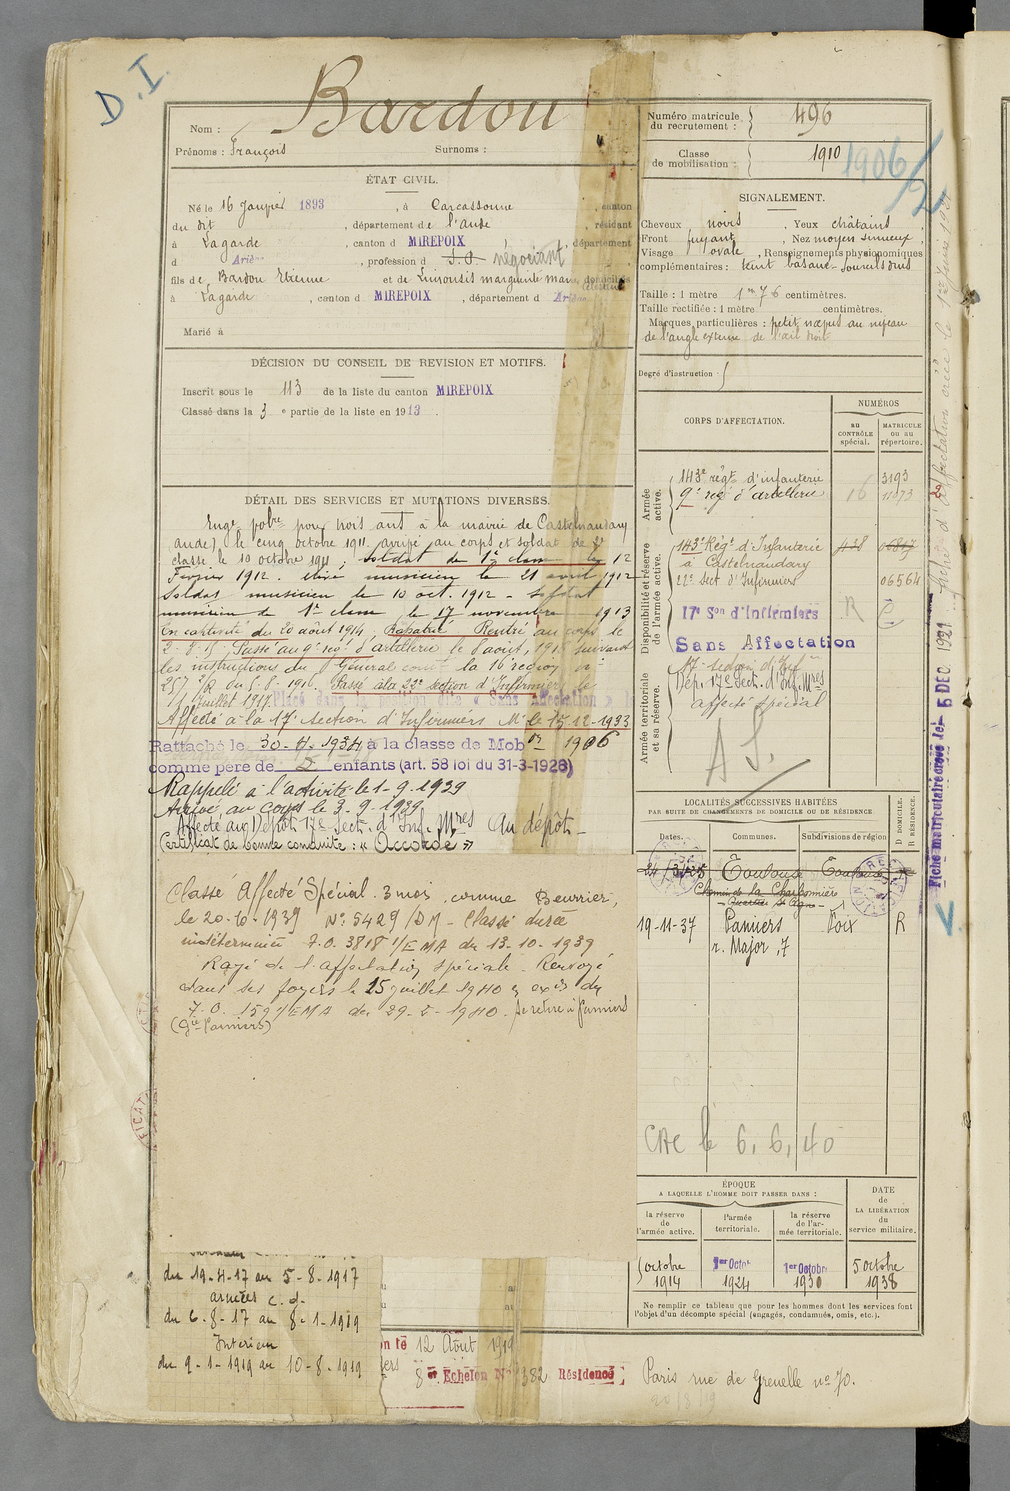 D.I.
Nom : Bardou
Prénoms : François Surnoms :
ÉTAT CIVIL.
Né le 16 Janvier 1893, à Carcassonne, canton
du dit, département de l'Aude, résidant
à Lagarde, canton d MIREPOIX, département
d Ariège, profession d S.O. négociant
fils de Bardou Etienne et de Limousis marguerite marie célestine domiciliés
à Lagarde, canton d MIREPOIX, département d Ariège
Marié à
DÉCISION DU CONSEIL DE REVISION ET MOTIFS.
Inscrit sous le 113 de la liste du canton MIREPOIX
Classé dans la 3e partie de la liste en 1913.
DÉTAIL DES SERVICES ET MUTATIONS DIVERSES.
Engé volre pour trois ans à la mairie de Castelnaudary
(aude) le cinq octobre 1911 arrivé au corps et soldat de 2e
classe le 10 octobre 1911 ; soldat de 1e classe le 12
Février 1912. élève musicien le 21 avril 1912
Soldat musicien le 10 oct. 1912 - Soldat
musicien de 1e classe le 17 novembre 1913
En captivité du 20 août 1914, Rapatrié Rentré au corps le
2.8.15. Passé au 9e régt d'artillerie le 8 août 1916 suivant
les instructions du Général comt la 16e région no
257 2/R du 5.8.1916. Passé à la 22e section d'Infirmiers le
1 juillet 1917. Placé dans la dite « Sans Affectation »
Affecté à la 17e Section d'Infirmiers Mres le 15-12-1933
Rattaché le 30-4-1934 à la classe de Mobon 1906
comme père de 2 enfants (art. 58 loi du 31-3-1928)
Rappelé à l'activité le 1-9-1939
Arrivé au corps le 3-9-1939
Affecté au Dépôt 17e Sect. d'Inf. Mres Au dépôt -
Certificat de bonne conduite : « Accordé »
Classé Affecté Spécial 3 mois, comme Beurrier,
le 20-10-1939 No 5429/DM - Classé durée
indéterminée I.O. 3818 1/EMA du 13-10-1939
Rayé de l'affectation spéciale. Renvoyé
dans ses foyers le 25 juillet 1940 en exon du
I.O. 159 1/EMA du 29-5-1940. Se retire à Pamiers
(Gie Pamiers)
du 19-4-17 au 5-8-1917
armées c.d.
du 6-8-17 au 8-1-1919
Intérieur
du 9-1-1919 au 10-8-1919
12 Août 1919
8e Echelon No 382 Résidence :
Paris rue de Grenelle no 70.
Numéro matricule du recrutement : 496
Classe de mobilisation : 1910 1906/2
SIGNALEMENT.
Cheveux noirs, Yeux châtains
Front fuyant, Nez moyen sinueux
Visage ovale, Renseignements physionomiques
complémentaires : teint basané - sourcils drus
Taille : 1 mètre 1m 76 centimètres.
Taille rectifiée : 1 mètre centimètres.
Marques particulières : petit nævus au niveau
de l'angle externe de l'œil droit
Degré d'instruction :
CORPS D'AFFECTATION.
NUMÉROS
au CONTRÔLE spécial.
MATRICULE ou au répertoire.
Armée active.
143e régt d'infanterie 3193
9e regt d'artillerie 16 11873
Disponibilité et réserve de l'armée active.
143e Régt d'Infanterie 438
à Castelnaudary
22e Sect. d'Infirmiers 06564
17e Son d'Infirmiers R
Sans Affectation
Armée territoriale et sa réserve.
17e Section d'Infres
Dép. 17e Sect. d'Inf. Mres
affecté spécial
A S.
LOCALITÉS SUCCESSIVES HABITÉES
PAR SUITE DE CHANGEMENTS DE DOMICILE OU DE RÉSIDENCE
Dates. Communes. Subdivisions de région
D DOMICILE. R RÉSIDENCE.
Toulouse Toulouse
Chemin de la Charbonnière
- Quartier St Agne -
19-11-37 Pamiers Foix R
r. Major, 7
CAC le 6, 6, 40
ÉPOQUE
A LAQUELLE L'HOMME DOIT PASSER DANS :
la réserve de l'armée active.
l'armée territoriale.
la réserve de l'armée territoriale.
DATE de LA LIBÉRATION du service militaire.
5 octobre 1914
1er Octobre 1924
1er Octobre 1930
5 octobre 1938
Ne remplir ce tableau que pour les hommes dont les services font
l'objet d'un décompte spécial (engagés, condamnés, omis, etc.).
Fiche matriculaire dressée le 5 DEC 1929
Fiche d'affectation créée le